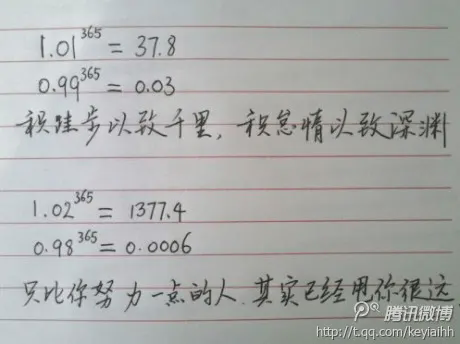 1.01³⁶⁵ = 37.8
0.99³⁶⁵ = 0.03
积跬步以致千里，积怠惰以致深渊
1.02³⁶⁵ = 1377.4
0.98³⁶⁵ = 0.0006
只比你努力一点的人.其实已经甩你很远
腾讯微博
http://t.qq.com/keyiaihh